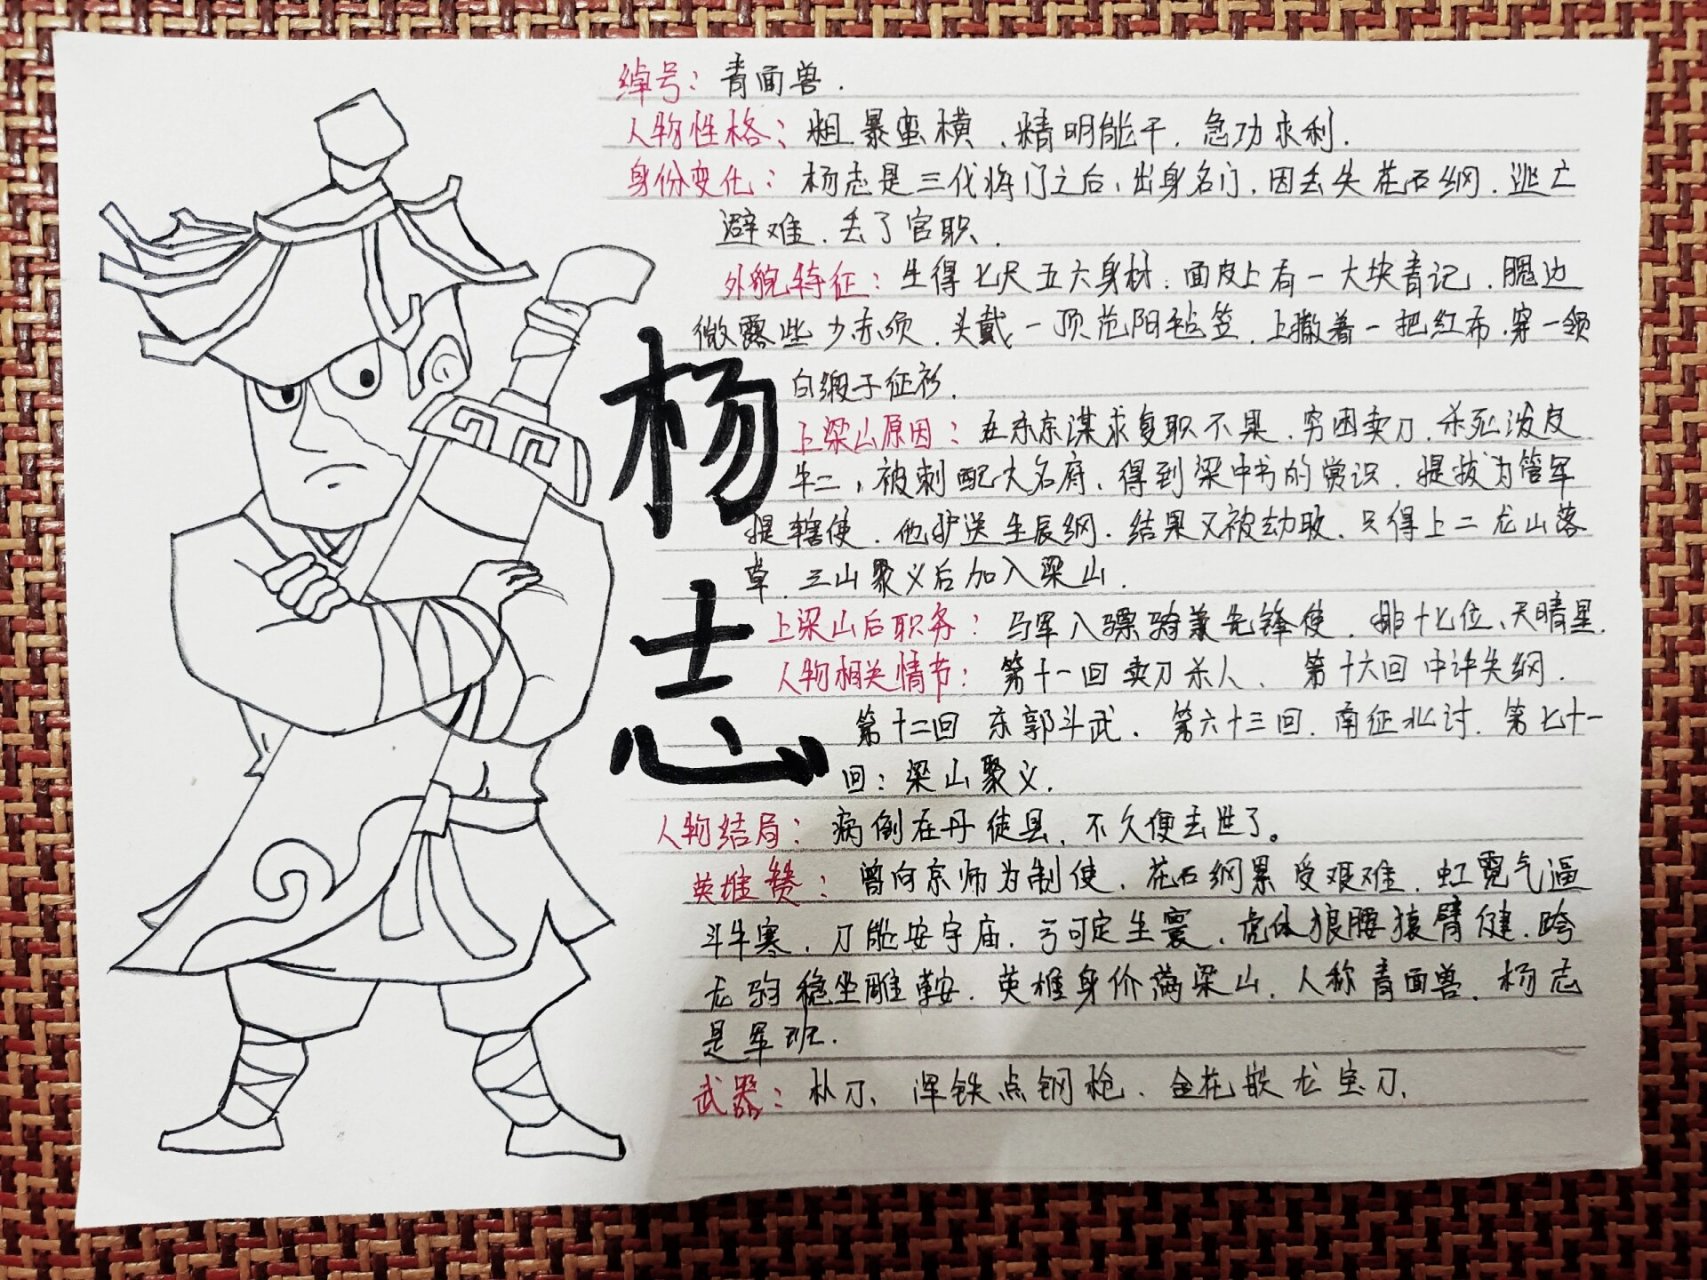 绰号：青面兽.
人物性格：粗暴蛮横、精明能干、急功求利.
身份变化：杨志是三代将门之后，出身名门，因丢失花石纲、逃亡
避难、丢了官职、
外貌特征：生得七尺五六身材；面皮上有一大块青记、腮边
微露些少赤须、头戴一顶范阳毡笠、上撒着一把红布、穿一领
白缎子征衫.
上梁山原因：在东京谋求复职不果、穷困卖刀、杀死泼皮
牛二，被刺配大名府、得到梁中书的赏识、提拔为管军
提辖使、他护送生辰纲、结果又被劫取、只得上二龙山落
草、三山聚义后加入梁山.
上梁山后职务：马军八骠骑兼先锋使、排十七位、天暗星.
人物相关情节：第十一回 卖刀杀人、第十六回 中计失纲.
第十二回 东郭斗武、第六十三回、南征北讨、第七十一
回：梁山聚义.
人物结局：病倒在丹徒县、不久便去世了。
英雄赞：曾向京师为制使、花石纲累受艰难、虹霓气逼
斗牛寒、刀能安宇庙、弓可定生寰、虎体狼腰猿臂健、跨
龙驹稳坐雕鞍、英雄身价满梁山、人称青面兽、杨志
是军班.
武器：朴刀、浑铁点钢枪、金花嵌龙宝刀、
杨志